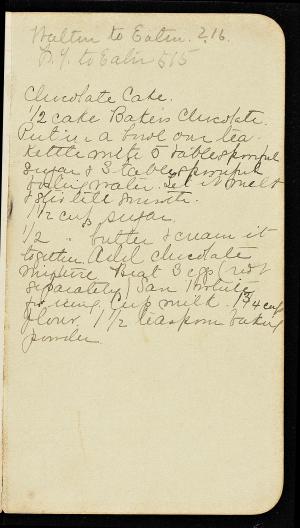 Walton to Eaton. 2.16.
N.Y. to Eaton 5.15
Chocolate Cake.
1/2 cake Baker's Chocolate.
Put in a bowl over tea-
kettle with 5 tablespoonfuls
sugar & 3 tablespoonfuls
boiling water. Let it melt
& stir till smooth.
1 1/2 cup sugar
1/2 " butter & cream it
together. Add chocolate
mixture Beat 3 eggs (not
separately) Save 1 white
for icing. 1 cup milk. 1 3/4 cup
flour. 1 1/2 teaspoon baking
powder